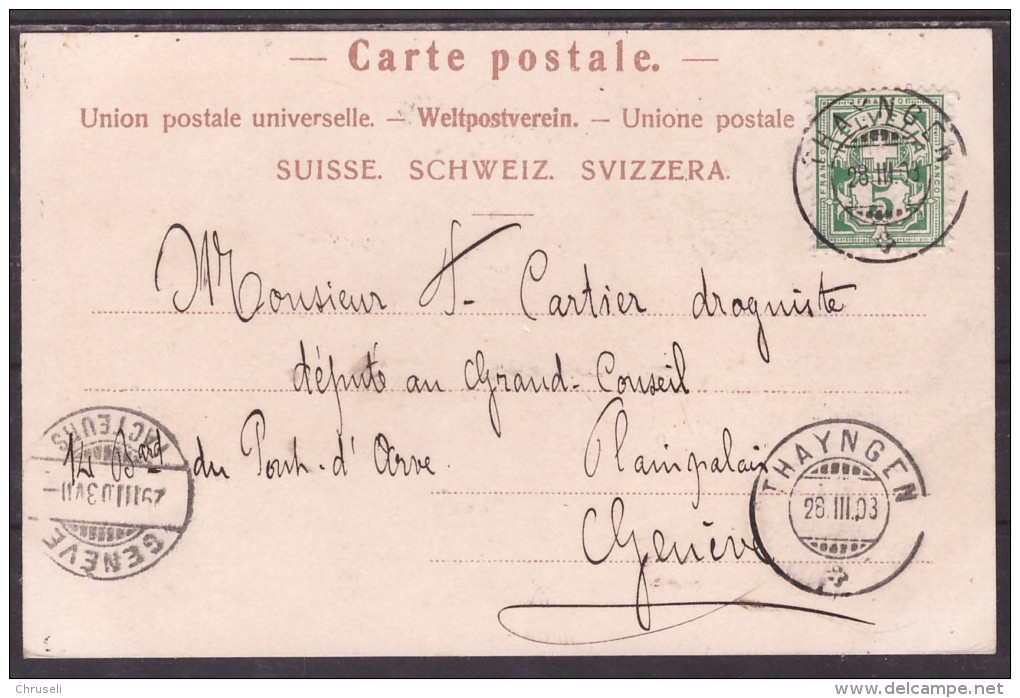 — Carte postale. —
Union postale universelle. — Weltpostverein. — Unione postale
SUISSE. SCHWEIZ. SVIZZERA.
THAYNGEN
28.III.03
FRANCO
HELVETIA
5
Monsieur A. Cartier droguiste
député au Grand-Conseil
14 Bard du Pont-d'Arve Plainpalais
Genève
THAYNGEN
28.III.03
GENÈVE
29.III.03 VII
FACTEURS
Chruseli
www.delcampe.net